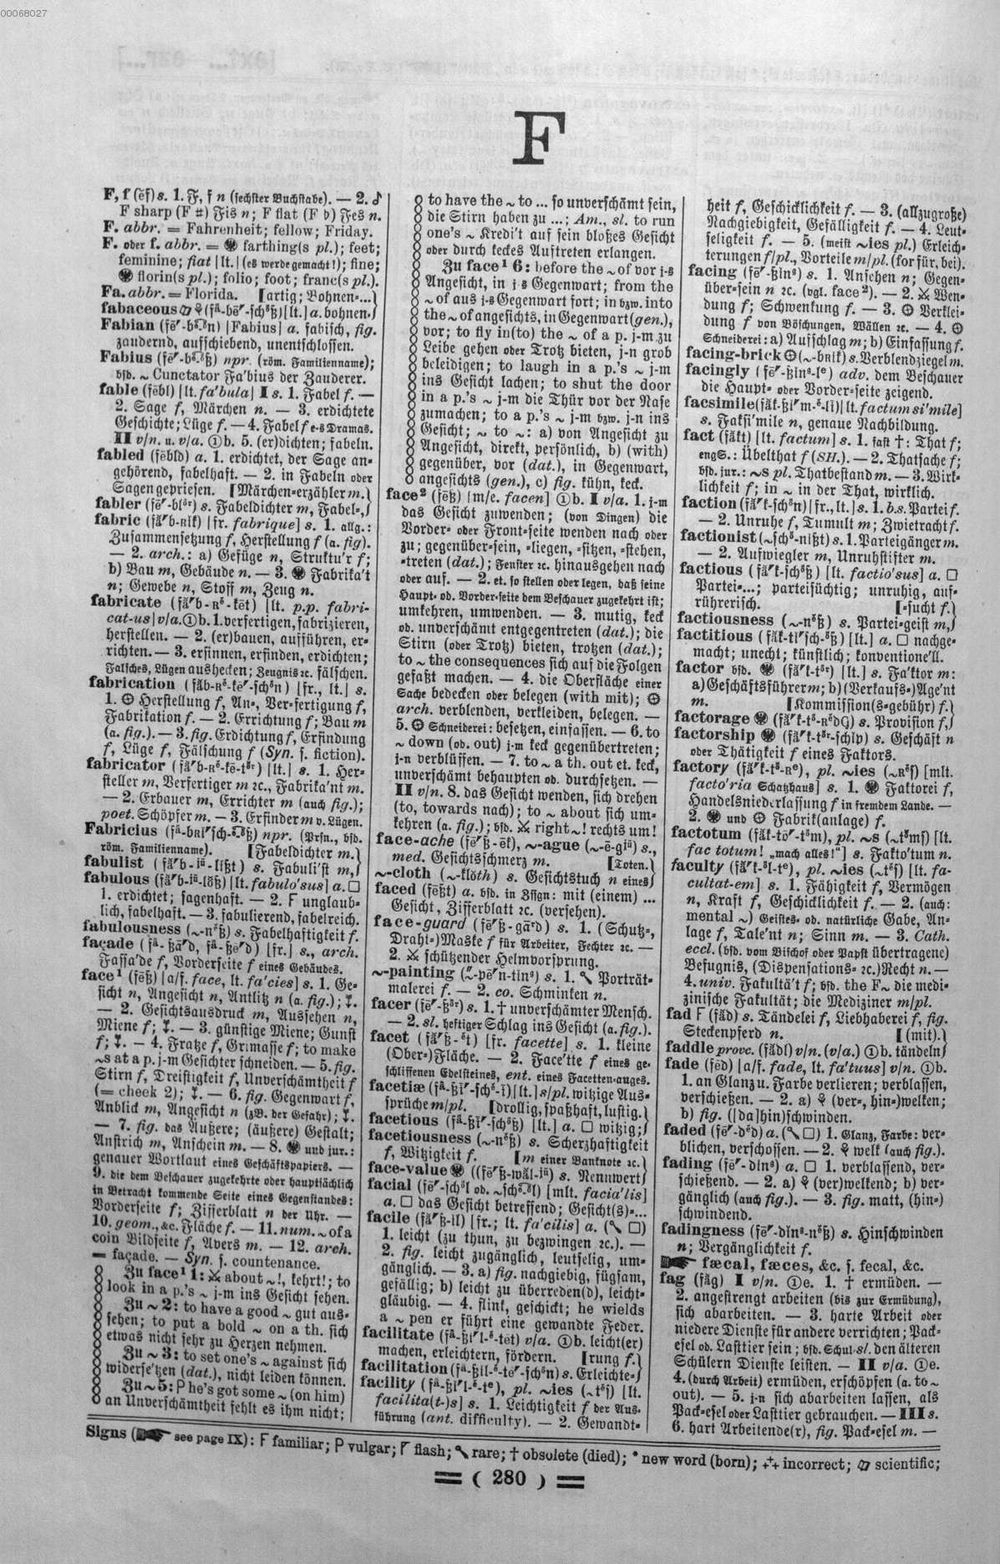 00068027
F
F, f (ĕf) s. 1. F, f n (sechster Buchstabe). — 2. ♪
F sharp (F ♯) Fis n; F flat (F ♭) Fes n.
F. abbr. = Fahrenheit; fellow; Friday.
F. oder f. abbr. = farthing(s pl.); feet;
feminine; fiat [lt.] (es werde gemacht!); fine;
florin(s pl.); folio; foot; franc(s pl.).
Fa. abbr. = Florida. [artig; Bohnen-...]
fabaceous [lt.] a. bohnen-
Fabian [Fabius] a. fabisch, fig.
zaudernd, aufschiebend, unentschlossen.
Fabius npr. (röm. Familienname);
bsd. ~ Cunctator Fa'bius der Zauderer.
fable (fēbl) [lt. fa'bula] I s. 1. Fabel f. —
2. Sage f, Märchen n. — 3. erdichtete
Geschichte; Lüge f. — 4. Fabel f e-s Dramas.
II v/n. u. v/a. ①b. 5. (er)dichten; fabeln.
fabled (fēbld) a. 1. erdichtet, der Sage an-
gehörend, fabelhaft. — 2. in Fabeln oder
Sagen gepriesen. [Märchen-erzähler m.]
fabler s. Fabeldichter m, Fabel-,
fabric [fr. fabrique] s. 1. allg.:
Zusammensetzung f, Herstellung f (a. fig).
— 2. arch.: a) Gefüge n, Struktu'r f;
b) Bau m, Gebäude n. — 3. Fabrika't
n; Gewebe n, Stoff m, Zeug n.
fabricate [lt. p.p. fabri-
cat-us] v/a. ①b. 1. verfertigen, fabrizieren,
herstellen. — 2. (er)bauen, aufführen, er-
richten. — 3. ersinnen, erfinden, erdichten;
Falsches, Lügen aushecken; Zeugnis ꝛc. fälschen.
fabrication [fr., lt.] s.
1. Herstellung f, An-, Ver-fertigung f,
Fabrikation f. — 2. Errichtung f; Bau m
(a. fig.). — 3. fig. Erdichtung f, Erfindung
f, Lüge f, Fälschung f (Syn. s. fiction).
fabricator [lt.] s. 1. Her-
steller m, Verfertiger m ꝛc., Fabrika'nt m.
— 2. Erbauer m, Errichter m (auch fig.);
poet. Schöpfer m. — 3. Erfinder m v. Lügen.
Fabricius npr. (Prsn., bsd.
röm. Familienname). [Fabeldichter m.]
fabulist s. Fabuli'st m,
fabulous [lt. fabulo'sus] a. □
1. erdichtet; sagenhaft. — 2. F unglaub-
lich, fabelhaft. — 3. fabulierend, fabelreich.
fabulousness s. Fabelhaftigkeit f.
façade [fr.] s., arch.
Fassa'de f, Vorderseite f eines Gebäudes.
face¹ (fēß) [a/f. face, lt. fa'cies] s. 1. Ge-
sicht n, Angesicht n, Antlitz n (a. fig.);
— 2. Gesichtsausdruck m, Aussehen n,
Miene f; — 3. günstige Miene; Gunst
f; — 4. Fratze f, Grimasse f; to make
~s at a p. j-m Gesichter schneiden. — 5. fig.
Stirn f, Dreistigkeit f, Unverschämtheit f
(= check 2); — 6. fig. Gegenwart f,
Anblick m, Angesicht n (zB. der Gefahr);
— 7. fig. das Äußere; (äußere) Gestalt;
Anstrich m, Anschein m. — 8. und jur.:
genauer Wortlaut eines Geschäftspapiers. —
9. die dem Beschauer zugekehrte oder hauptsächlich
in Betracht kommende Seite eines Gegenstandes:
Vorderseite f; Zifferblatt n der Uhr. —
10. geom., &c. Fläche f. — 11. num. ~ of a
coin Bildseite f, Avers m. — 12. arch.
= façade. — Syn. s. countenance.
Zu face¹ 1: about ~!, kehrt!; to
look in a p.'s ~ j-m ins Gesicht sehen.
Zu ~ 2: to have a good ~ gut aus-
sehen; to put a bold ~ on a th. sich
etwas nicht sehr zu Herzen nehmen.
Zu ~ 3: to set one's ~ against sich
widerse'tzen (dat.), nicht leiden können.
Zu ~ 5: P he's got some ~ (on him)
an Unverschämtheit fehlt es ihm nicht;
to have the ~ to ... so unverschämt sein,
die Stirn haben zu ...; Am., sl. to run
one's ~ Kredi't auf sein bloßes Gesicht
oder durch keckes Auftreten erlangen.
Zu face¹ 6: before the ~ of vor j-s
Angesicht, in j-s Gegenwart; from the
~ of aus j-s Gegenwart fort; in bzw. into
the ~ of angesichts, in Gegenwart (gen.),
vor; to fly in(to) the ~ of a p. j-m zu
Leibe gehen oder Trotz bieten, j-n grob
beleidigen; to laugh in a p.'s ~ j-m
ins Gesicht lachen; to shut the door
in a p.'s ~ j-m die Thür vor der Nase
zumachen; to a p.'s ~ j-m bzw. j-n ins
Gesicht; ~ to ~: a) von Angesicht zu
Angesicht, direkt, persönlich, b) (with)
gegenüber, vor (dat.), in Gegenwart,
angesichts (gen.), c) fig. kühn, keck.
face² (fēß) [m/e. facen] ①b. I v/a. 1. j-m
das Gesicht zuwenden; (von Dingen) die
Vorder- oder Front-seite wenden nach oder
zu; gegenüber-sein, -liegen, -sitzen, -stehen,
-treten (dat.); Fenster ꝛc. hinausgehen nach
oder auf. — 2. et. so stellen oder legen, daß seine
Haupt- od. Vorder-seite dem Beschauer zugekehrt ist;
umkehren, umwenden. — 3. mutig, keck
od. unverschämt entgegentreten (dat.); die
Stirn (oder Trotz) bieten, trotzen (dat.);
to ~ the consequences sich auf die Folgen
gefaßt machen. — 4. die Oberfläche einer
Sache bedecken oder belegen (with mit);
arch. verblenden, verkleiden, belegen. —
5. Schneiderei: besetzen, einfassen. — 6. to
~ down (od. out) j-m keck gegenübertreten;
j-n verblüffen. — 7. to ~ a th. out et. keck,
unverschämt behaupten od. durchsetzen. —
II v/n. 8. das Gesicht wenden, sich drehen
(to, towards nach); to ~ about sich um-
kehren (a. fig.); bsd. right ~! rechts um!
face-ache, ~-ague s.,
med. Gesichtsschmerz m. [Toten.]
~-cloth (~-klŏth) s. Gesichtstuch n eines
faced (fēßt) a. bsd. in Zssgn: mit (einem) ...
Gesicht, Zifferblatt ꝛc. (versehen).
face-guard s. 1. (Schutz-,
Draht-)Maske f für Arbeiter, Fechter ꝛc. —
2. schützender Helmvorsprung.
~-painting s. 1. Porträt-
malerei f. — 2. co. Schminken n.
facer s. 1. † unverschämter Mensch.
— 2. sl. heftiger Schlag ins Gesicht (a. fig.).
facet [fr. facette] s. 1. kleine
(Ober-)Fläche. — 2. Face'tte f eines ge-
schliffenen Edelsteines, ent. eines Facetten-auges.
facetiæ [lt.] s/pl. witzige Aus-
sprüche m/pl. [drollig, spaßhaft, lustig.]
facetious [lt.] a. □ witzig;
facetiousness s. Scherzhaftigkeit
f, Witzigkeit f. [m einer Banknote ꝛc.]
face-value s. Nennwert
facial [mlt. facia'lis]
a. □ das Gesicht betreffend; Gesicht(s)-...
facile [fr.; lt. fa'cilis] a. (□)
1. leicht (zu thun, zu bezwingen ꝛc.). —
2. fig. leicht zugänglich, leutselig, um-
gänglich. — 3. a) fig. nachgiebig, fügsam,
gefällig; b) leicht zu überreden(d), leicht-
gläubig. — 4. flint, geschickt; he wields
a ~ pen er führt eine gewandte Feder.
facilitate v/a. ①b. leicht(er)
machen, erleichtern, fördern. [rung f.]
facilitation s. Erleichte-
facility, pl. ~ies [lt.
facilita(t-)s] s. 1. Leichtigkeit f der Aus-
führung (ant. difficulty). — 2. Gewandt-
heit f, Geschicklichkeit f. — 3. (allzugroße)
Nachgiebigkeit, Gefälligkeit f. — 4. Leut-
seligkeit f. — 5. (meist ~ies pl.) Erleich-
terungen f/pl., Vorteile m/pl. (for für, bei).
facing s. 1. Ansehen n; Gegen-
über-sein n ꝛc. (vgl. face²). — 2. Wen-
dung f; Schwenkung f. — 3. Verklei-
dung f von Böschungen, Wällen ꝛc. — 4.
Schneiderei: a) Aufschlag m; b) Einfassung f.
facing-brick s. Verblendziegel m.
facingly adv. dem Beschauer
die Haupt- oder Vorder-seite zeigend.
facsimile [lt. factum si'mile]
s. Faksi'mile n, genaue Nachbildung.
fact (făkt) [lt. factum] s. 1. fast †: That f;
engS.: Übelthat f (SH.). — 2. Thatsache f;
bsd. jur.: ~s pl. Thatbestand m. — 3. Wirk-
lichkeit f; in ~ in der That, wirklich.
faction [fr., lt.] s. 1. b.s. Partei f.
— 2. Unruhe f, Tumult m; Zwietracht f.
factionist s. 1. Parteigänger m.
— 2. Aufwiegler m, Unruhstifter m.
factious [lt. factio'sus] a. □
Partei-...; parteisüchtig; unruhig, auf-
rührerisch. [-sucht f.]
factiousness s. Partei-geist m,
factitious [lt.] a. □ nachge-
macht; unecht; künstlich; konventione'll.
factor bsd. [lt.] s. Fa'ktor m:
a) Geschäftsführer m; b) (Verkaufs-)Age'nt
m. [Kommission(s-gebühr) f.]
factorage s. Provision f,
factorship s. Geschäft n
oder Thätigkeit f eines Faktors.
factory, pl. ~ies [mlt.
facto'ria Schatzhaus] s. 1. Faktorei f,
Handelsniederlassung f in fremdem Lande. —
2. und Fabrik(anlage) f.
factotum, pl. ~s [lt.
fac totum! „mach alles!“] s. Fakto'tum n.
faculty, pl. ~ies [lt. fa-
cultat-em] s. 1. Fähigkeit f, Vermögen
n, Kraft f, Geschicklichkeit f. — 2. (auch:
mental ~) Geistes- od. natürliche Gabe, An-
lage f, Tale'nt n; Sinn m. — 3. Cath.
eccl. (bsd. vom Bischof oder Papst übertragene)
Befugnis, (Dispensations- ꝛc.) Recht n. —
4. univ. Fakultä't f; bsd. the F~ die medi-
zinische Fakultät; die Mediziner m/pl.
fad F (făd) s. Tändelei f, Liebhaberei f, fig.
Steckenpferd n. [(mit).]
faddle provc. (fădl) v/n. (v/a.) ①b. tändeln
fade (fēd) [a/f. fade, lt. fa'tuus] v/n. ①b.
1. an Glanz u. Farbe verlieren; verblassen,
verschießen. — 2. a) (ver-, hin-)welken;
b) fig. ([da]hin)schwinden.
faded a. (□) 1. Glanz, Farbe: ver-
blichen, verschossen. — 2. welk (auch fig.).
fading a. □ 1. verblassend, ver-
schießend. — 2. a) (ver)welkend; b) ver-
gänglich (auch fig.). — 3. fig. matt, (hin-)
schwindend.
fadingness s. Hinschwinden
n; Vergänglichkeit f.
fæcal, fæces, &c. s. fecal, &c.
fag (făg) I v/n. ①e. 1. † ermüden. —
2. angestrengt arbeiten (bis zur Ermüdung),
sich abarbeiten. — 3. harte Arbeit oder
niedere Dienste für andere verrichten; Pack-
esel od. Lasttier sein; bsd. Schul-sl. den älteren
Schülern Dienste leisten. — II v/a. ①e.
4. (durch Arbeit) ermüden, erschöpfen (a. to ~
out). — 5. j-n sich abarbeiten lassen, als
Pack-esel oder Lasttier gebrauchen. — III s.
6. hart Arbeitende(r), fig. Pack-esel m. —
Signs (see page IX): F familiar; P vulgar; flash; rare; † obsolete (died); * new word (born); incorrect; scientific;
( 280 )